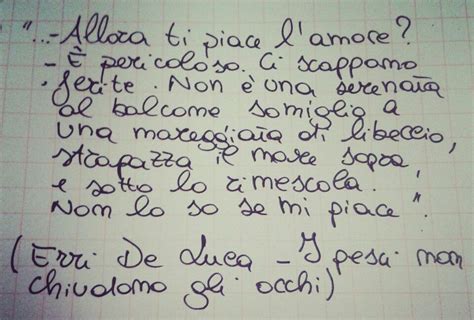 "...-Allora ti piace l'amore?
- È pericoloso. Ci scappano
ferite. Non è una serenata
al balcone somiglia a
una mareggiata di libeccio,
strapazza il mare sopra,
e sotto lo rimescola.
Non lo so se mi piace".
(Erri De Luca - I pesci non
chiudono gli occhi)